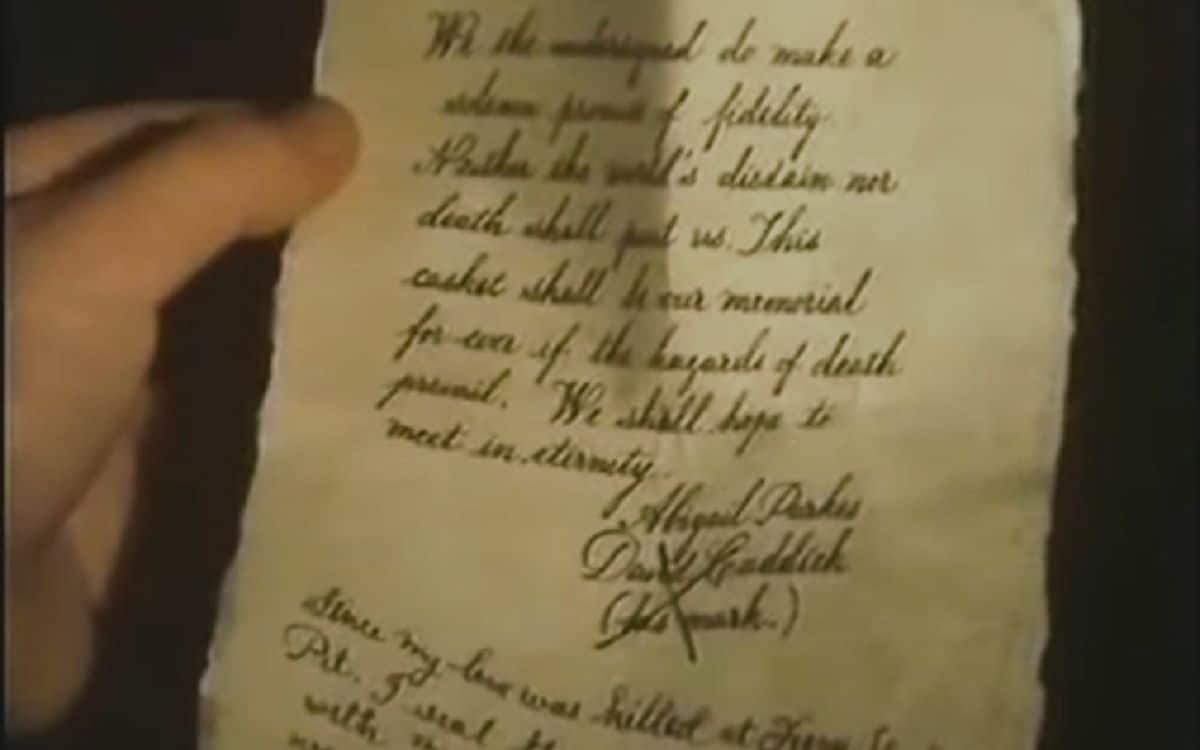 We the undersigned do make a
solemn promise of fidelity.
Neither the world's disdain nor
death shall part us. This
casket shall be our memorial
for ever if the hazards of death
prevail. We shall hope to
meet in eternity.
Abigail Parkes
David Caddick
(his mark.)
X
Since my love was killed at
Pit. I seal
with